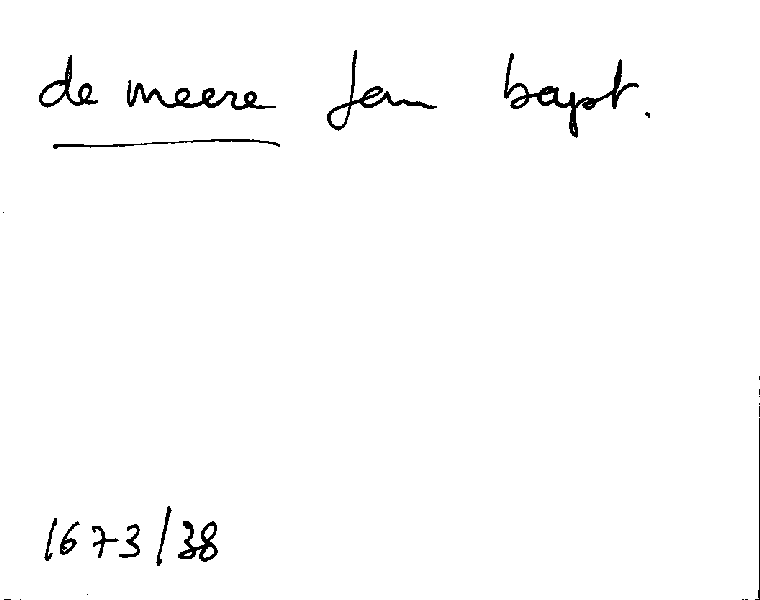 de meere Jan bapt.
1673/38